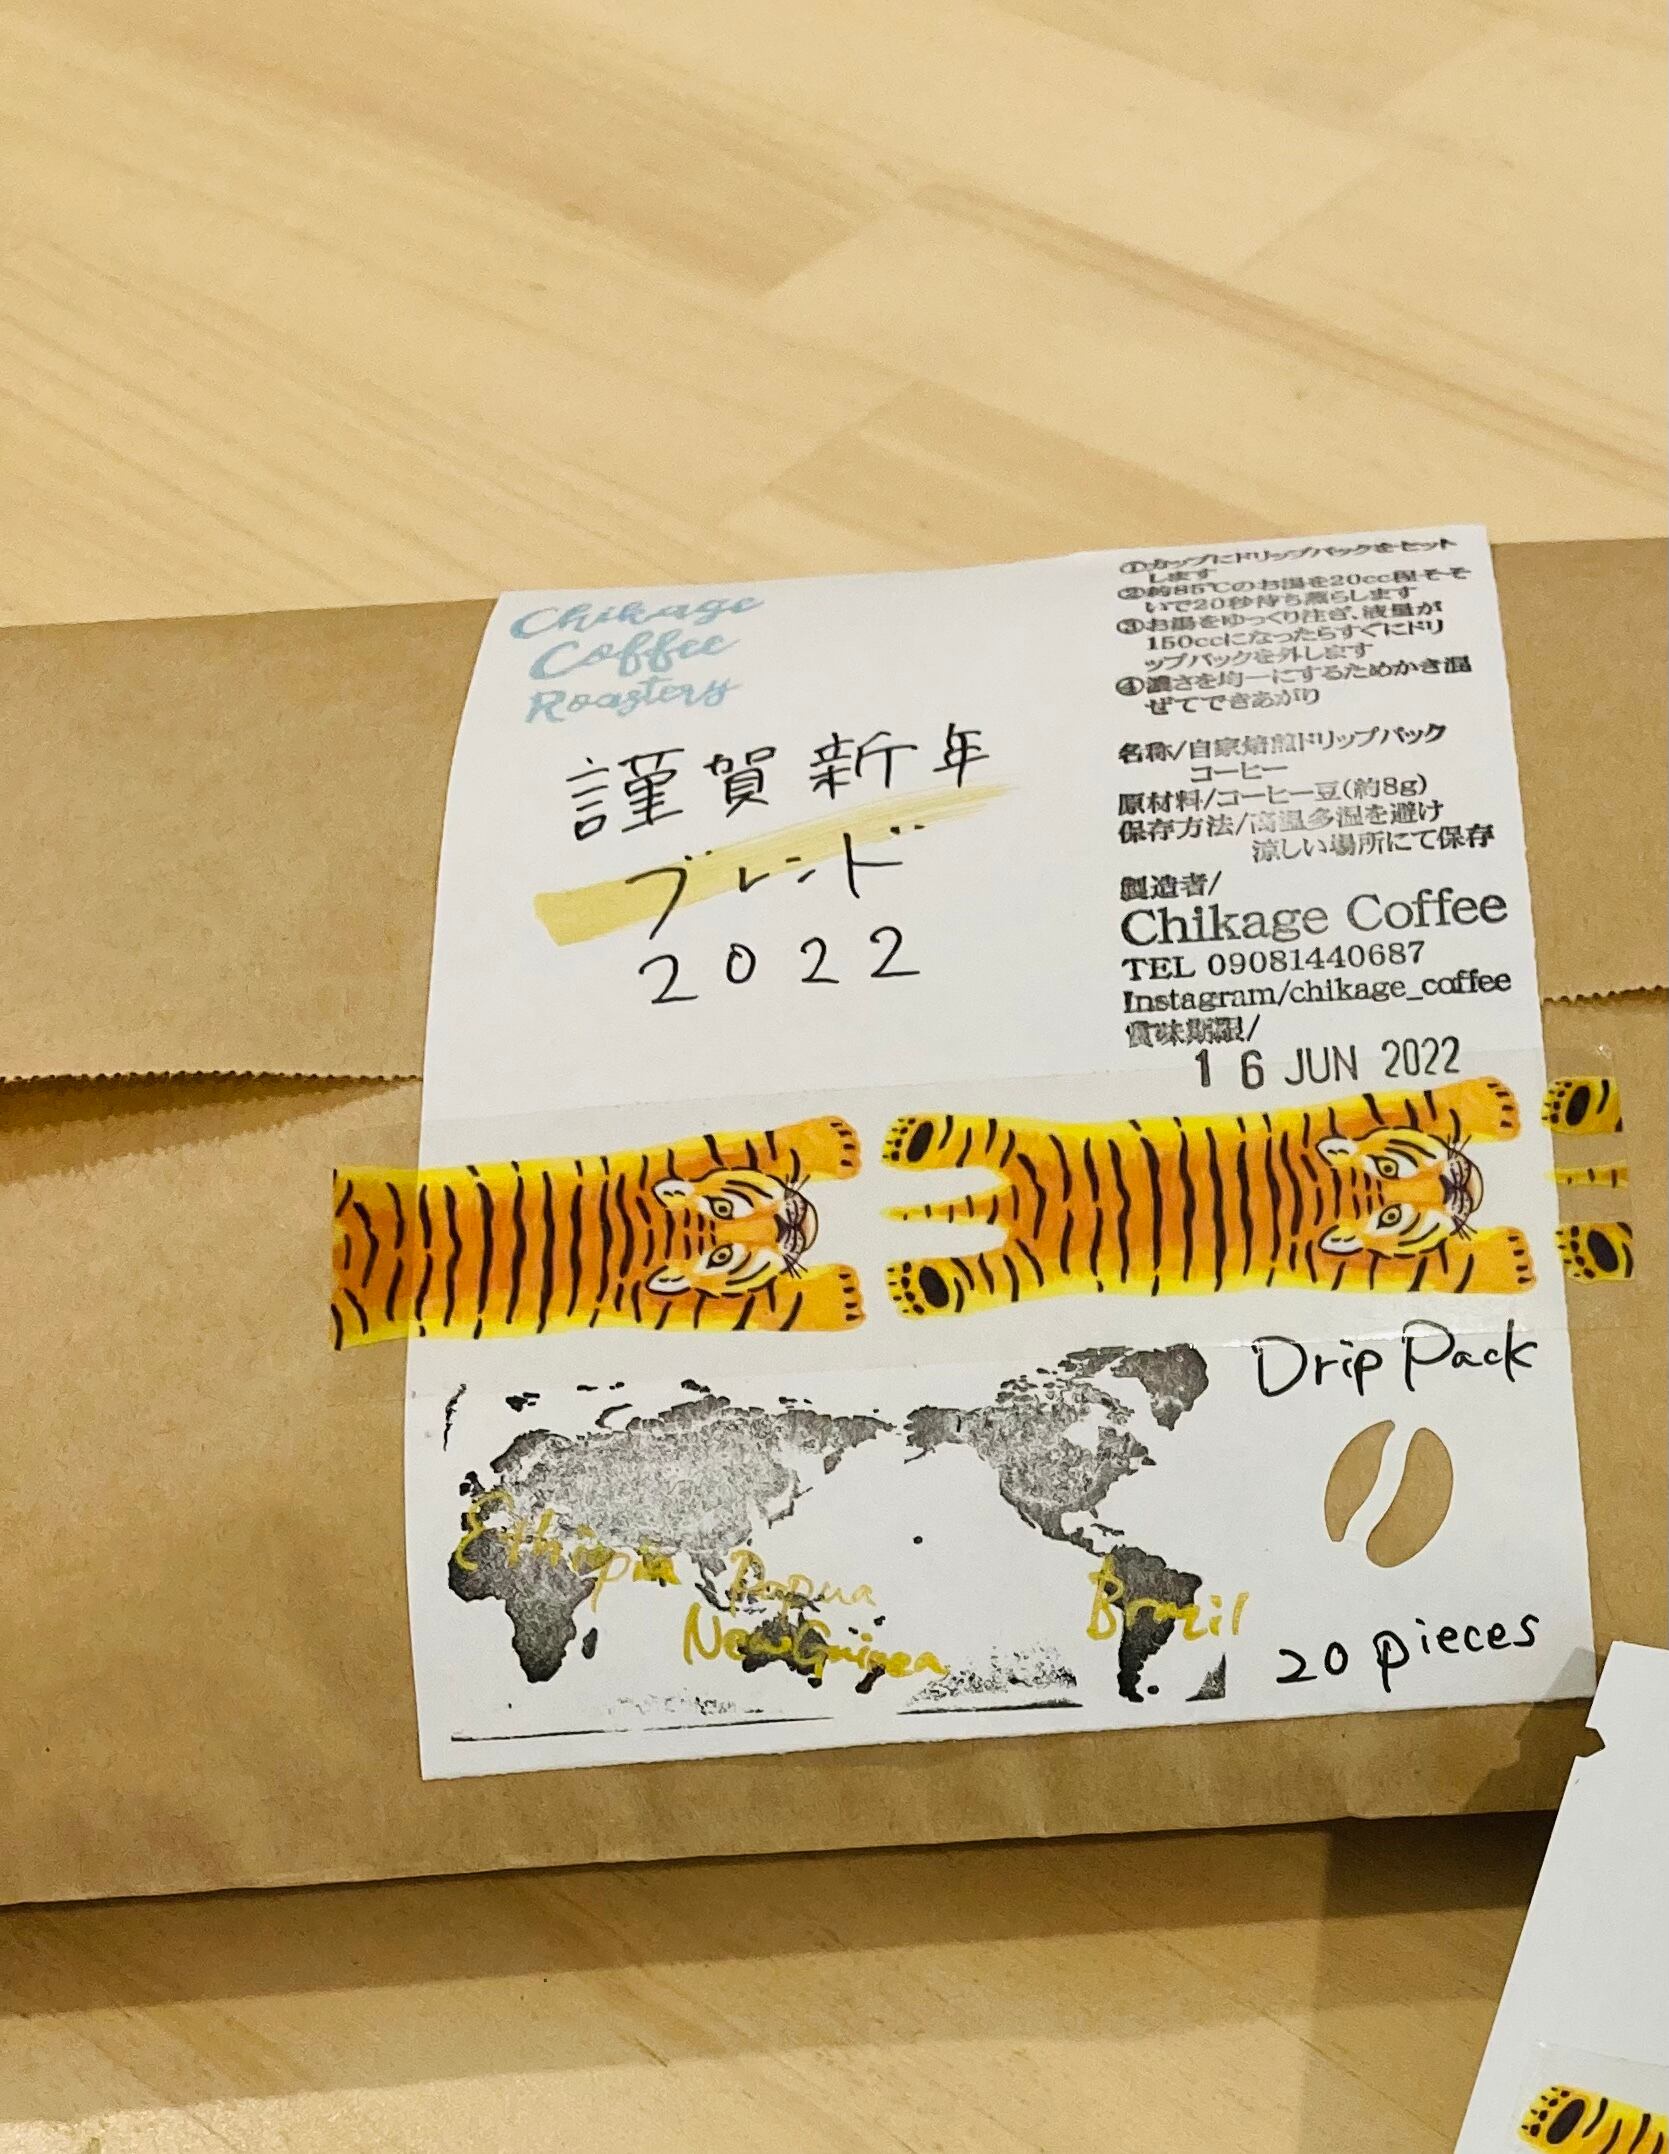 Chikage
Coffee
Roastery
謹賀新年
ブレンド
2022
①カップにドリップパックをセット
します
②約85℃のお湯を20cc程そそ
いで20秒待ち蒸らします
③お湯をゆっくり注ぎ、液量が
150ccになったらすぐにドリ
ップパックを外します
④濃さを均一にするためかき混
ぜてできあがり
名称/自家焙煎ドリップパック
コーヒー
原材料/コーヒー豆(約8g)
保存方法/高温多湿を避け
涼しい場所にて保存
製造者/
Chikage Coffee
TEL 09081440687
Instagram/chikage_coffee
賞味期限/
16 JUN 2022
Drip Pack
Ethiopia
Papua
New Guinea
Brazil
20 pieces